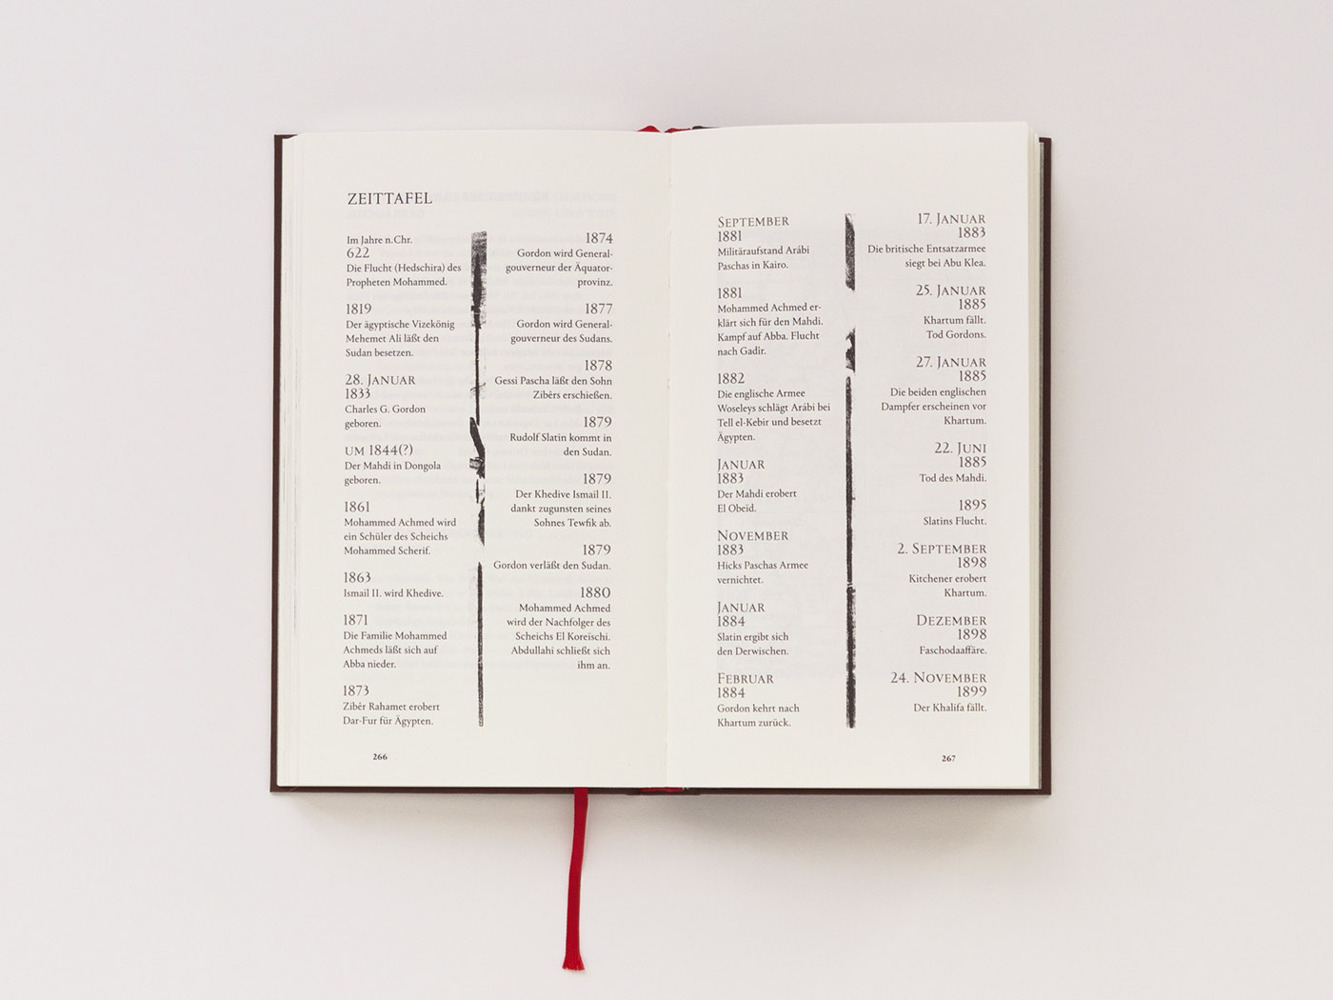 ZEITTAFEL
Im Jahre n.Chr.
622
Die Flucht (Hedschira) des
Propheten Mohammed.
1819
Der ägyptische Vizekönig
Mehemet Ali läßt den
Sudan besetzen.
28. JANUAR
1833
Charles G. Gordon
geboren.
UM 1844(?)
Der Mahdi in Dongola
geboren.
1861
Mohammed Achmed wird
ein Schüler des Scheichs
Mohammed Scherif.
1863
Ismail II. wird Khedive.
1871
Die Familie Mohammed
Achmeds läßt sich auf
Abba nieder.
1873
Zibêr Rahamet erobert
Dar-Fur für Ägypten.
1874
Gordon wird General-
gouverneur der Äquator-
provinz.
1877
Gordon wird General-
gouverneur des Sudans.
1878
Gessi Pascha läßt den Sohn
Zibêrs erschießen.
1879
Rudolf Slatin kommt in
den Sudan.
1879
Der Khedive Ismail II.
dankt zugunsten seines
Sohnes Tewfik ab.
1879
Gordon verläßt den Sudan.
1880
Mohammed Achmed
wird der Nachfolger des
Scheichs El Koreïschi.
Abdullahi schließt sich
ihm an.
266
SEPTEMBER
1881
Militäraufstand Arábi
Paschas in Kairo.
1881
Mohammed Achmed er-
klärt sich für den Mahdi.
Kampf auf Abba. Flucht
nach Gadîr.
1882
Die englische Armee
Woseleys schlägt Arábi bei
Tell el-Kebir und besetzt
Ägypten.
JANUAR
1883
Der Mahdi erobert
El Obeïd.
NOVEMBER
1883
Hicks Paschas Armee
vernichtet.
JANUAR
1884
Slatin ergibt sich
den Derwischen.
FEBRUAR
1884
Gordon kehrt nach
Khartum zurück.
17. JANUAR
1883
Die britische Entsatzarmee
siegt bei Abu Klea.
25. JANUAR
1885
Khartum fällt.
Tod Gordons.
27. JANUAR
1885
Die beiden englischen
Dampfer erscheinen vor
Khartum.
22. JUNI
1885
Tod des Mahdi.
1895
Slatins Flucht.
2. SEPTEMBER
1898
Kitchener erobert
Khartum.
DEZEMBER
1898
Faschodaaffäre.
24. NOVEMBER
1899
Der Khalifa fällt.
267